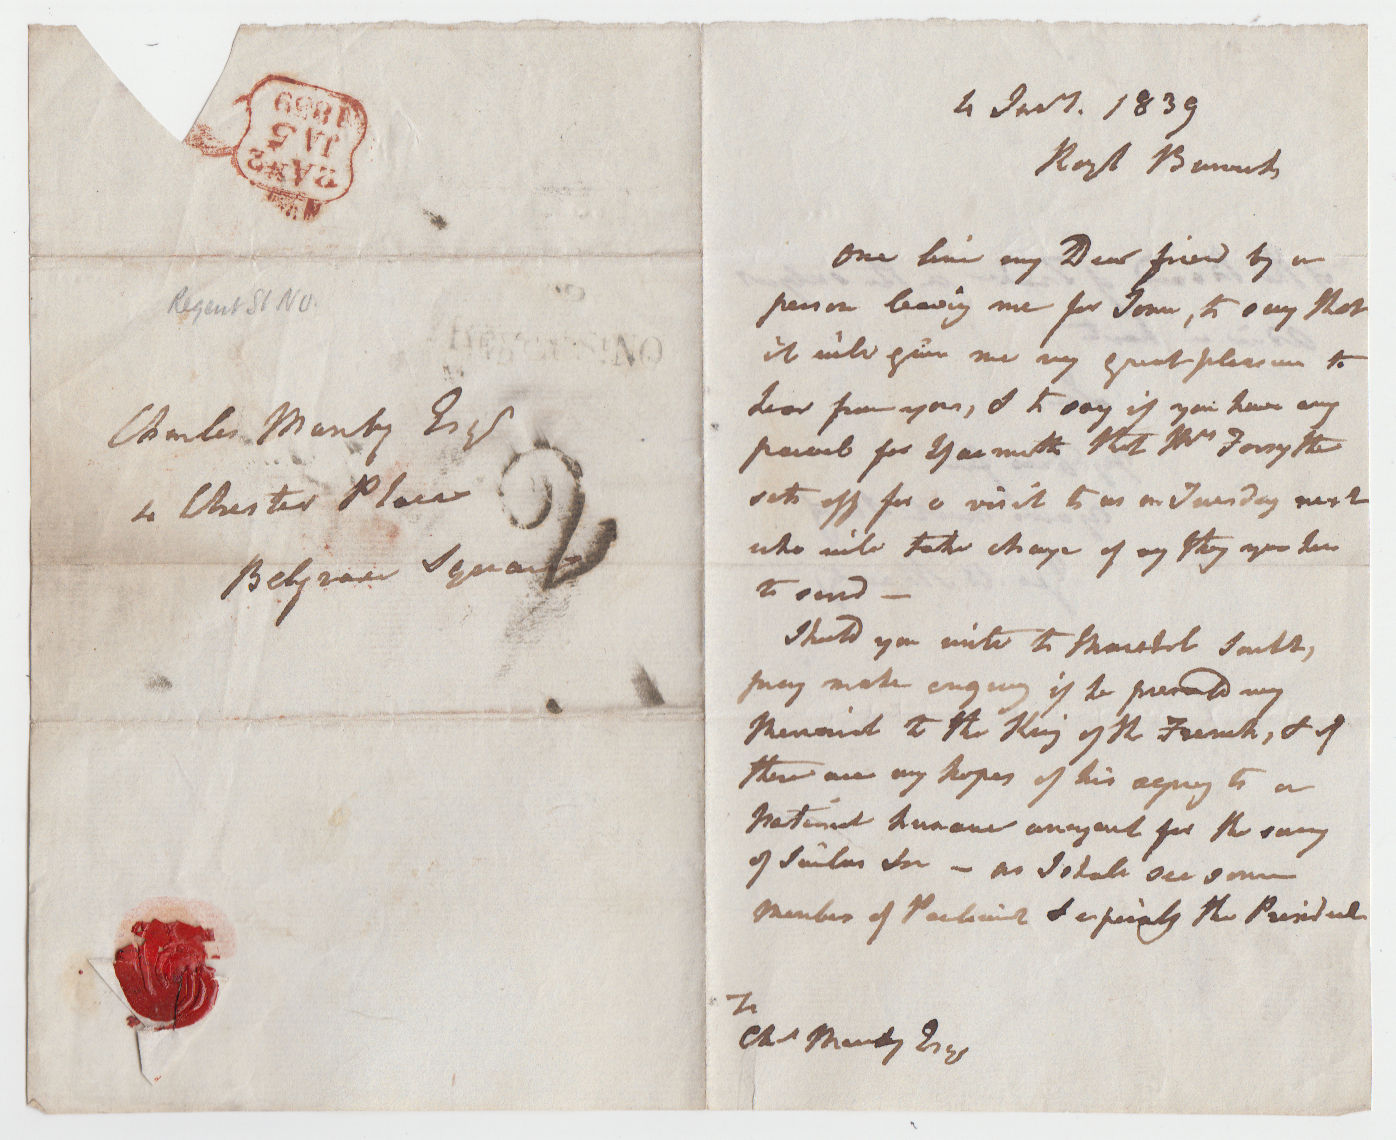 1839
JA 5
2AN2
Regent St NO
Charles Manby Esqr
4 Chester Place
Belgrave Square
2
4 Jany. 1839
Royl Barracks
One line my Dear friend by a
person leaving me for Town, to say that
it will give me very great pleasure to
hear from you, & to say if you have any
parcel for Yarmouth that Mrs Forsythe
sets off for a visit to us on Tuesday next
who will take charge of any thing you have
to send —
Should you write to Marshal Soult,
pray make enquiry if he presented my
Memorial to the King of the French, & if
there are any hopes of his agreeing to a
National humane for the saving
of Sailors — as I shall see some
Members of Parliament & especially the President
To
Chas Manby Esqr